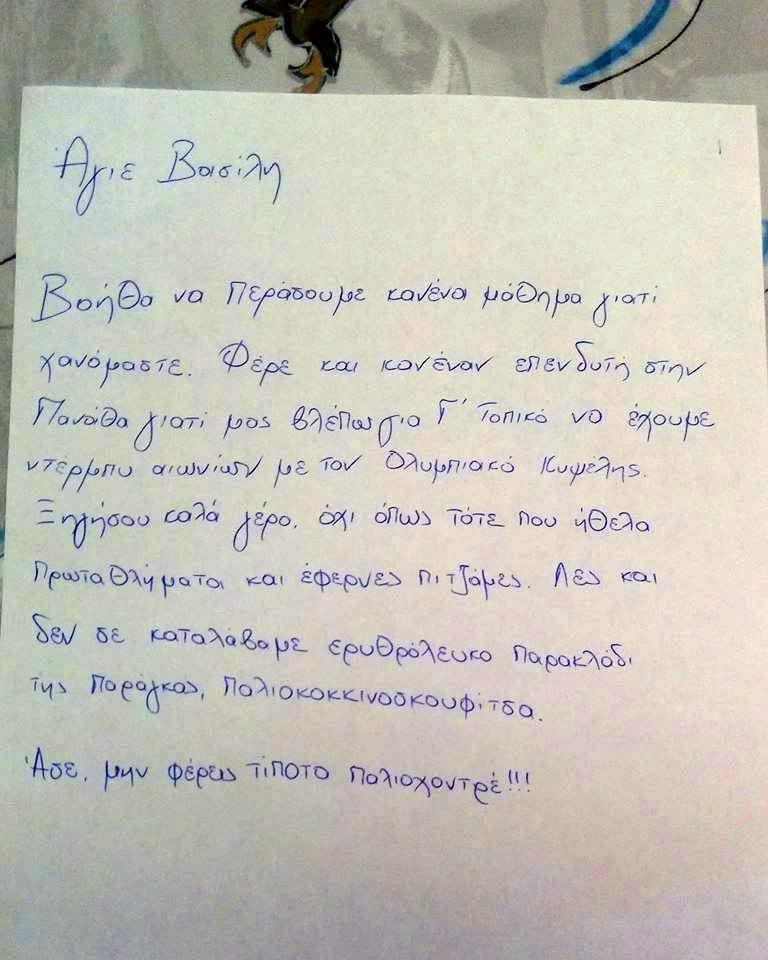 Άγιε Βασίλη
Βοήθα να περάσουμε κανένα μάθημα γιατί
χανόμαστε. Φέρε και κανέναν επενδυτή στην
Πανάθα γιατί μας βλέπω για Γ' Τοπικό να έχουμε
ντέρμπυ αιωνίων με τον Ολυμπιακό Κυψέλης.
Ξηγήσου καλά γέρο, όχι όπως τότε που ήθελα
πρωταθλήματα και έφερνες πιτζάμες. Λες και
δεν σε καταλάβαμε ερυθρόλευκο παρακλάδι
της Παράγκας, Παλιοκοκκινοσκουφίτσα.
Άσε, μην φέρεις τίποτα παλιοχοντρέ!!!